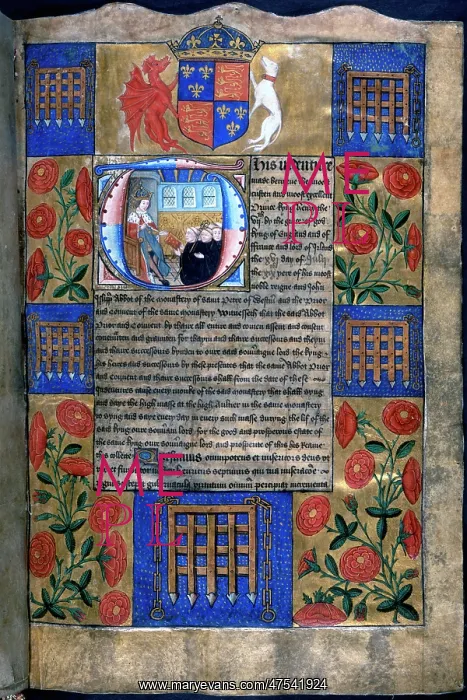 This indenture
made betwene the moost
cristen and moost excellent
Prince kyng Henry the
vij. by the grace of god
kyng of England and of
ffraunce and lord of Irland
the xvj day of July
the xix yere of his moost
noble reigne and John
Islipp Abbot of the monastery of saint Petre of Westm. and the Priour
and convent of the same monastery Witnesseth that the said Abbot
Priour and Convent by thaire all entire and comen assent and consent
covenaunten and graunten for thaym and thaire successours and theym
and thaire successours bynden to oure said souveraigne lord the kyng
his heires and successours by these presents that the same Abbot Priour
and Convent and thaire successours shall from the date of these
indentures cause every monke of the said monastery that shall syng
and saye the high masse at the high Aulter in the same monastery
to syng and saye every day in every such masse duryng the lif of the
said kyng oure souverain lord for the good and prosperous estate of
the same kyng oure souveraigne lord and prosperite of this his Reame
this collecte Quesumus omnipotens et misericors deus ut
Rex Henricus septimus qui tua miseracione
gubernacula virtutum omnium percipiat incrementa
ME
PL
ME
PL
www.maryevans.com/47541924